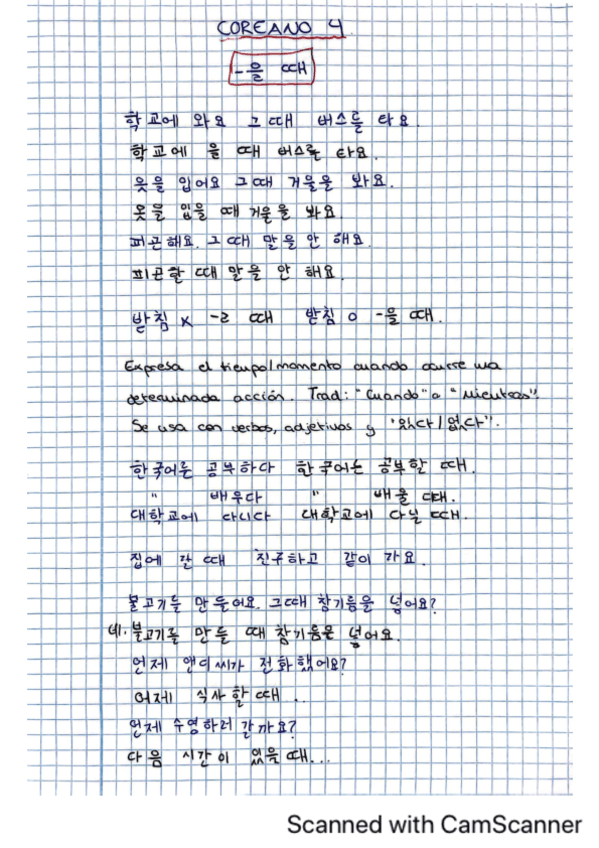 COREANO 4
-을 때
학교에 와요 그때 버스를 타요.
학교에 올 때 버스를 타요.
옷을 입어요 그때 거울을 봐요.
옷을 입을 때 거울을 봐요.
피곤해요. 그때 말을 안 해요.
피곤할 때 말을 안 해요.
받침 x -ㄹ 때 받침 o -을 때.
Expresa el tiempo/momento cuando ocurre una
determinada acción. Trad: "Cuando" o "Mientras".
Se usa con verbos, adjetivos y "있다/없다".
한국어를 공부하다 한국어를 공부할 때.
" 배우다 " 배울 때.
대학교에 다니다 대학교에 다닐 때.
집에 갈 때 친구하고 같이 가요.
불고기를 만들어요. 그때 참기름을 넣어요?
네. 불고기를 만들 때 참기름을 넣어요.
언제 앤디씨가 전화했어요?
어제 식사할 때...
언제 수영하러 갈까요?
다음 시간이 있을 때...